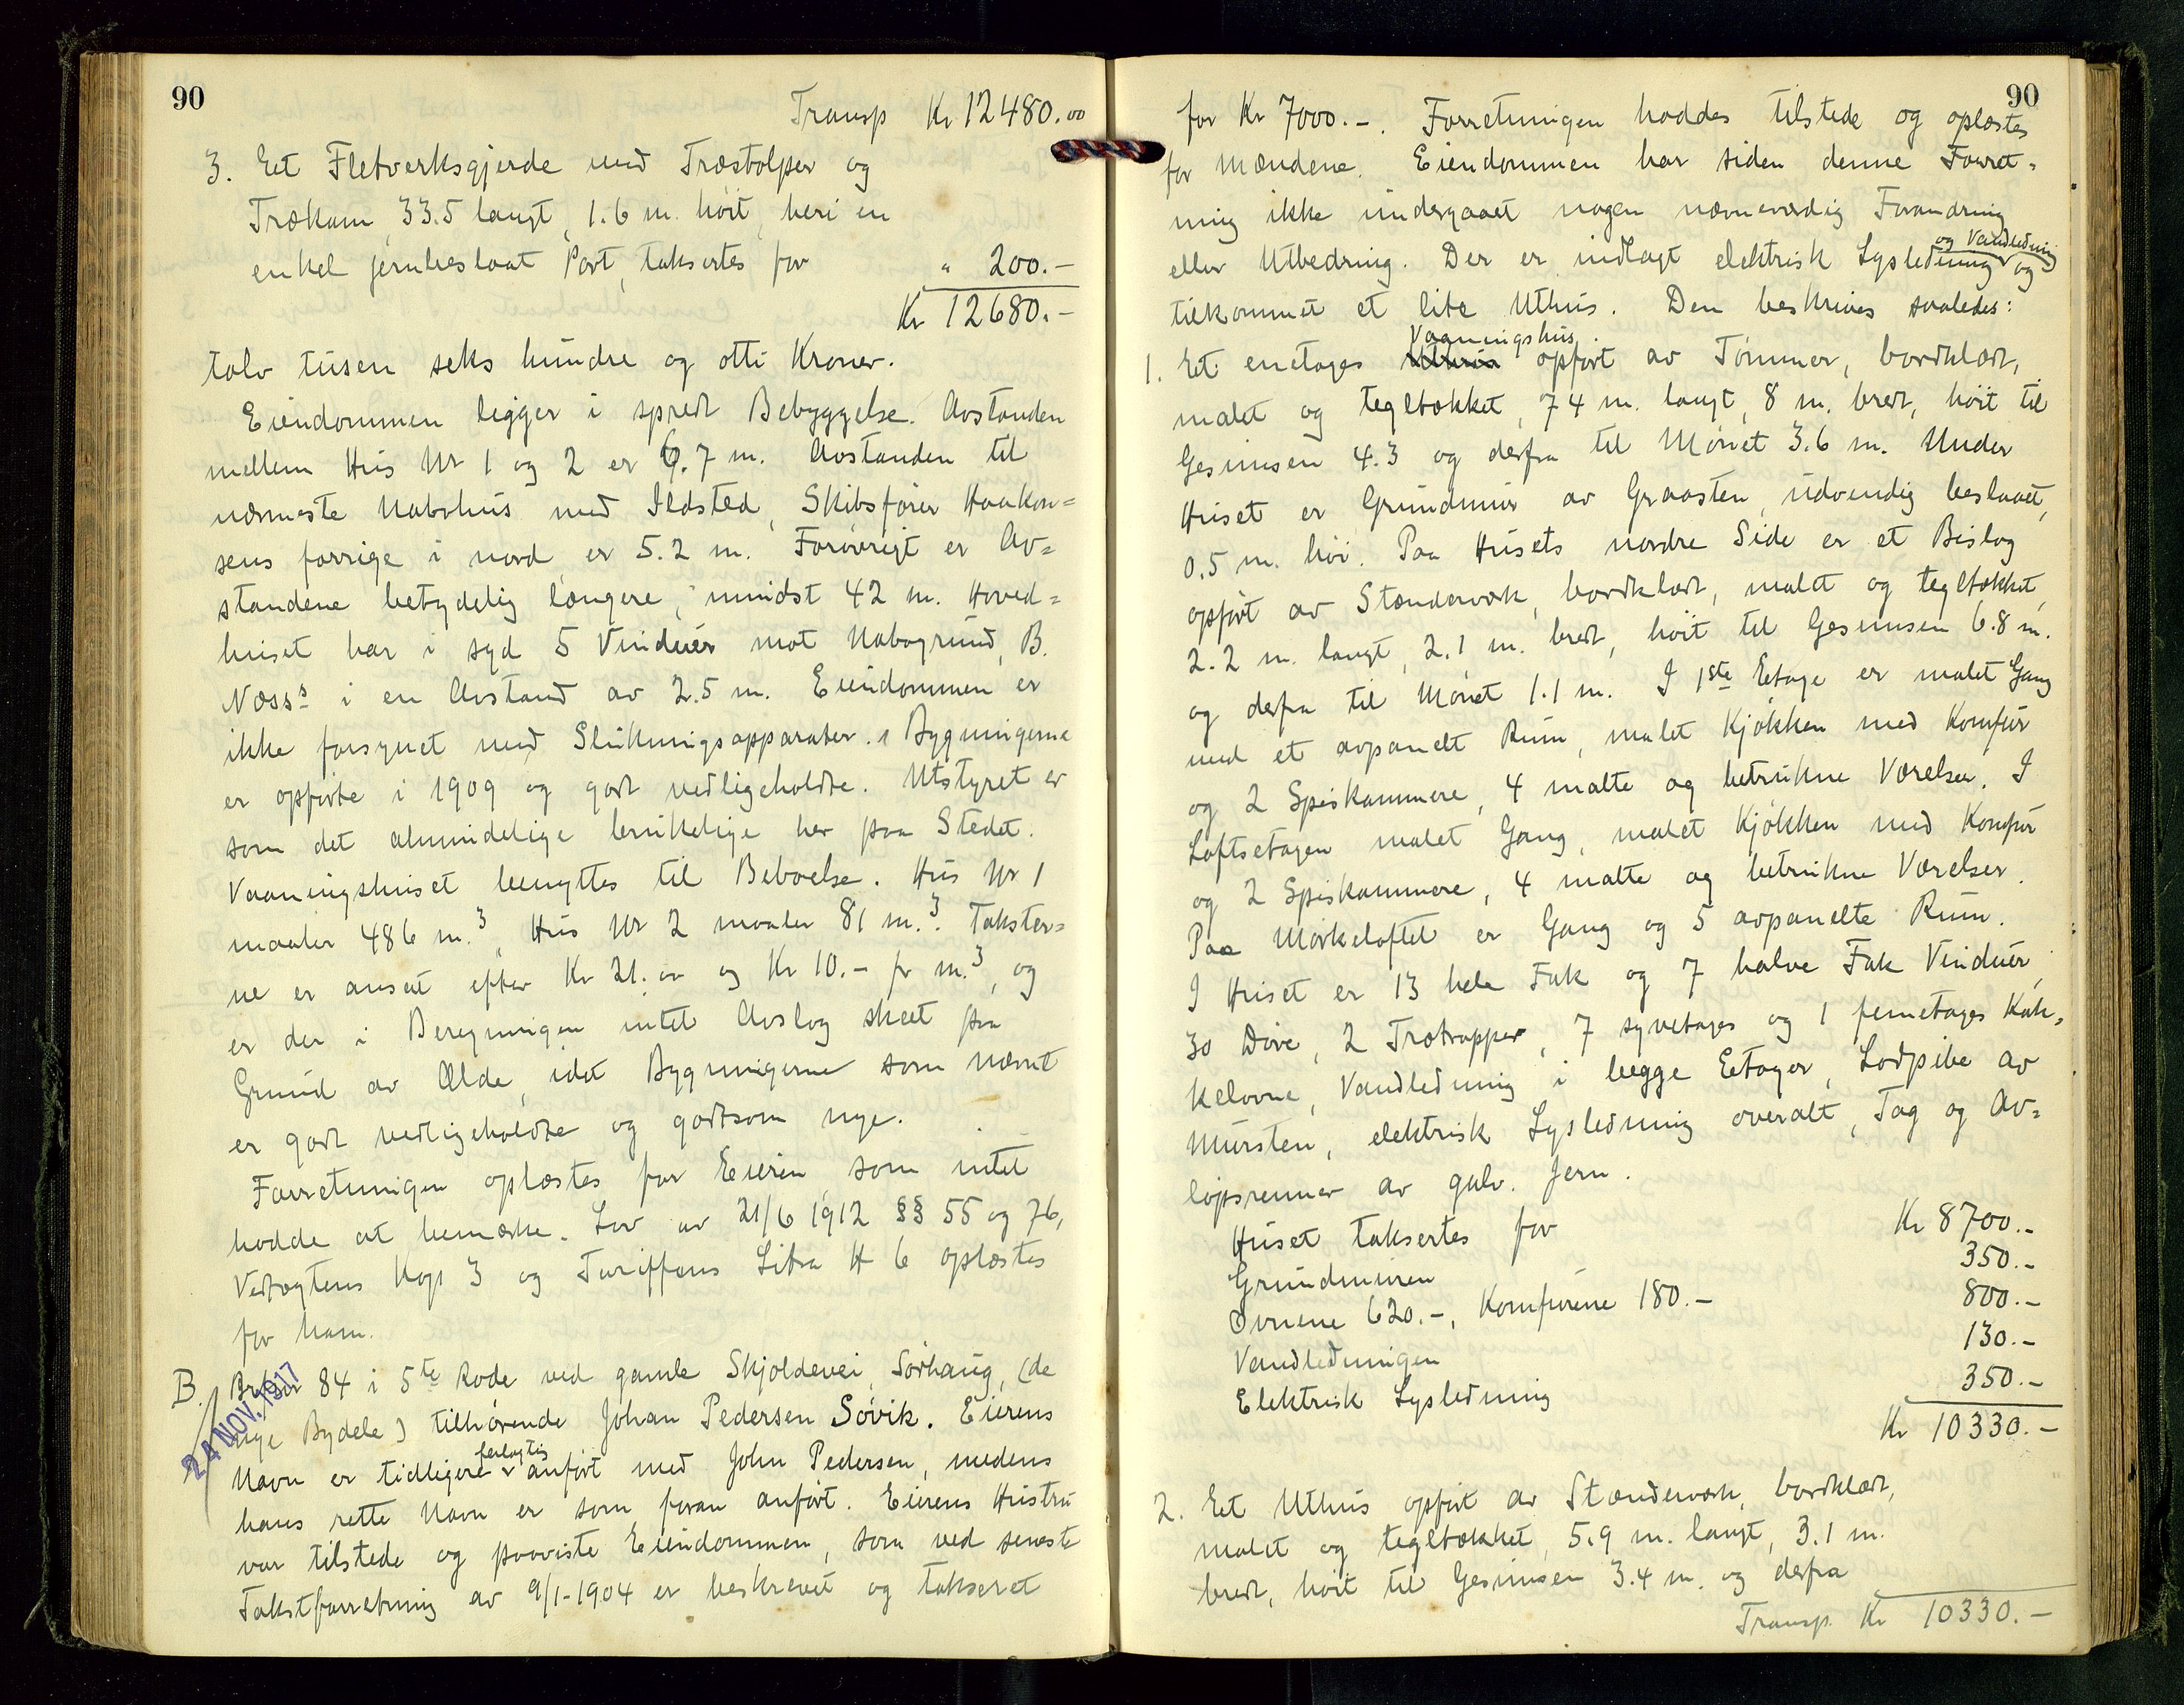 90
Transp Kr 12480.00
3. Eet Fletverksgjerde med Træstolper og
Trækam, 33.5 langt, 1.6 m. höit, heri en
enkel jernbeslaat Port, taksertes for " 200.-
Kr 12680.-
tolv tusen seks hundre og otti Kroner.
Eiendommen ligger i spredt Bebyggelse. Avstanden
mellem Hus Nr 1 og 2 er 6.7 m. Avstanden til
nærmeste Nabohus med Ildsted, Skibsfører Haakon=
sens forrige i nord er 5.2 m. Forövrigt er Av=
standene betydelig længere, mindst 42 m. Hoved=
huset har i syd 5 Vinduer mot Nabogrund, B.
Næss's i en Avstand av 2.5 m. Eiendommen er
ikke forsynet med Slukningsapparater. Bygningerne
er opförte i 1909 og godt vedligeholdte. Utstyret er
som det almindelige brukelige her paa Stedet.
Vaaningshuset benyttes til Beboelse. Hus Nr 1
maaler 486 m.³, Hus Nr 2 maaler 81 m.³. Takster=
ne er ansat efter Kr 21.00 og Kr 10.- pr m.³, og
er der i Beregningen intet Avslag skeet paa
Grund av Ælde, idet Bygningerne som nævnt
er godt vedligeholdte og godtsom nye.
Forretningen oplæstes for Eieren, som intet
hadde at bemærke. Lov av 21/6 1912 §§ 55 og 76,
Vedtægtens Kap 3 og Tariffens Litra H 6 oplæstes
for ham.
B. Br Nr 84 i 5te Rode ved gamle Skjoldevei, Sörhaug, (de
nye Bydele) tilhörende Johan Pedersen Sövik. Eierens
24 NOV. 1917
Navn er tidligere feilagtig anfört med John Pedersen, medens
hans rette Navn er som foran anfört. Eierens Hustru
var tilstede og paaviste Eiendommen, som ved seneste
Takstforretning av 9/1-1904 er beskrevet og taksert
90
for Kr 7000.-. Forretningen haddes tilstede og oplæstes
for Mændene. Eiendommen har siden denne Forret=
ning ikke undergaaet nogen nævneværdig Forandring
eller Utbedring. Der er indlagt elektrisk Lysledning og Vandledning og
tilkommet et lite Uthus. Den beskrives saaledes:
1. Et enetages Vaaningshus opfört av Tömmer, bordklædt,
malet og tegltækket, 7.4 m. langt, 8 m. bredt, höit til
Gesimsen 4.3 og derfra til Mönet 3.6 m. Under
Huset er Grundmur av Graasten, udvendig beslaaet,
0.5 m. höi. Paa Husets nordre Side er et Bislag
opfört av Stænderværk, bordklædt, malet og tegltækket,
2.2 m. langt, 2.1 m. bredt, höit til Gesimsen 6.8 m.
og derfra til Mönet 1.1 m. I 1ste Etage er malet Gang
med et avpanelt Rum, malet Kjökken med Komfur
og 2 Spiskammere, 4 malte og betrukne Værelser. I
Loftsetagen malet Gang, malet Kjökken med Komfur
og 2 Spiskammere, 4 malte og betrukne Værelser.
Paa Mörkeloftet er Gang og 5 avpanelte Rum.
I Huset er 13 hele Fak og 7 halve Fak Vinduer,
30 Döre, 2 Trætrapper, 7 syvetages og 1 femetages Kak=
kelovne, Vandledning i begge Eetager, Lodpibe av
Mursten, elektrisk Lysledning overalt, Tag og Av=
löpsrenner av galv. Jern.
Huset taksertes for Kr 8700.-
Grundmuren 350.-
Ovnene 620.-, Komfurene 180.- 800.-
Vandledningen 130.-
Elektrisk Lysledning 350.-
Kr 10330.-
2. Eet Uthus opfört av Stænderværk, bordklædt,
malet og tegltækket, 5.9 m. langt, 3.1 m.
bredt, höit til Gesimsen 3.4 m. og derfra
Transp. Kr 10330.-